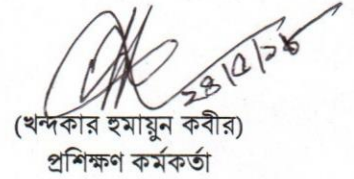 ২৪/৫/২৪
(খন্দকার হুমায়ুন কবীর)
প্রশিক্ষণ কর্মকর্তা